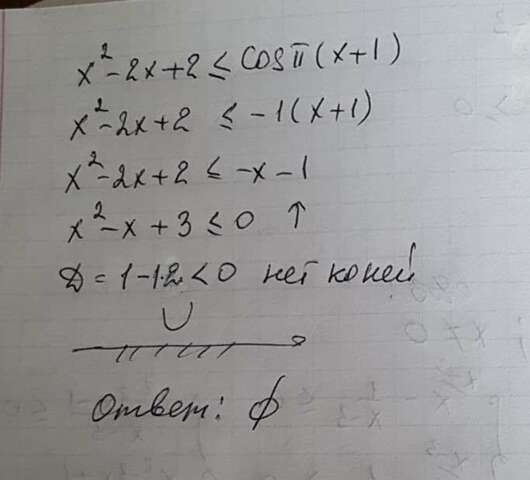 x² - 2x + 2 ≤ cos π (x + 1)
x² - 2x + 2 ≤ -1 (x + 1)
x² - 2x + 2 ≤ -x - 1
x² - x + 3 ≤ 0 ↑
D = 1 - 12 < 0 нет коней
Ответ: ∅